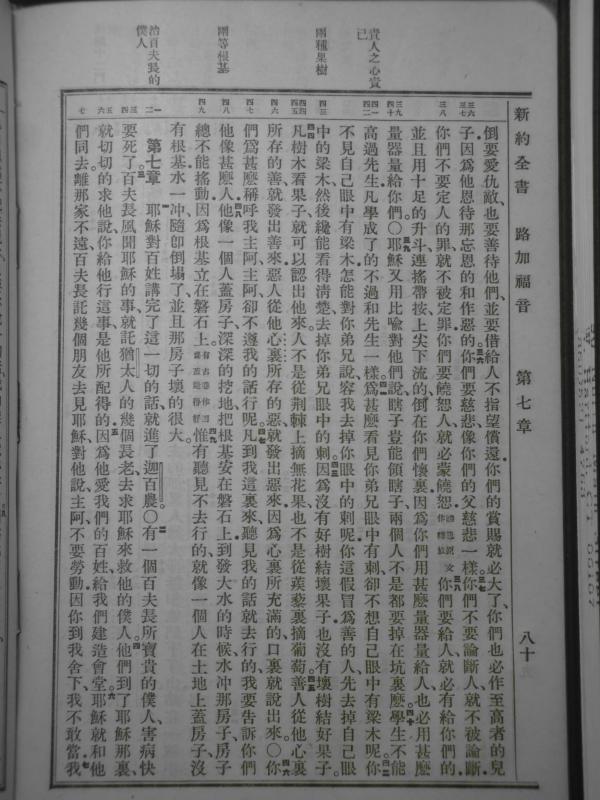 新約全書 路加福音 第七章 八十
貴人之心貴己
兩種果樹
兩等根基
治百夫長的僕人
倒要愛仇敵也要善待他們並要借給人不指望償還你們的賞賜就必大了你們也必作至高者的兒
子因爲他恩待那忘恩的和作惡的你們要慈悲像你們的父慈悲一樣你們不要論斷人就不被論斷
你們不要定人的罪就不被定罪你們要饒恕人就必蒙饒恕 你們要給人就必有給你們的
並且用十足的升斗連搖帶按上尖下流的倒在你們懷裏因爲你們用甚麽量器量給人也必用甚麽
量器量給你們〇耶穌又用比喻對他們說瞎子豈能領瞎子兩個人不是都要掉在坑裏麽學生不能
高過先生凡學成了的不過和先生一樣爲甚麽看見你弟兄眼中有刺卻不想自己眼中有梁木呢你
不見自己眼中有梁木怎能對你弟兄說容我去掉你眼中的刺呢你這假冒爲善的人先去掉自己眼
中的梁木然後纔能看得清楚去掉你弟兄眼中的刺因爲沒有好樹結壞果子也沒有壞樹結好果子
凡樹木看果子就可以認出他來人不是從荊棘上摘無花果也不是從蒺藜裏摘葡萄善人從他心裏
所存的善就發出善來惡人從他心裏所存的惡就發出惡來因爲心裏所充滿的口裏就說出來〇你
們爲甚麽稱呼我主阿主阿卻不遵我的話行呢凡到我這裏來聽見我的話就去行的我要告訴你們
他像甚麽人他像一個人蓋房子深深的挖地把根基安在磐石上到發大水的時候水冲那房子房子
總不能搖動因爲根基立在磐石上 惟有聽見不去行的就像一個人在土地上蓋房子沒
有根基水一冲隨即倒塌了並且那房子壞的很大
第七章 耶穌對百姓講完了這一切的話就進了迦百農〇有一個百夫長所寶貴的僕人害病快
要死了百夫長風聞耶穌的事就託猶太人的幾個長老去求耶穌來救他的僕人他們到了耶穌那裏
就切切的求他說你給他行這事是他所配得的因爲他愛我們的百姓給我們建造會堂耶穌就和他
們同去離那家不遠百夫長託幾個朋友去見耶穌對他說主阿不要勞動因你到我舍下我不敢當我